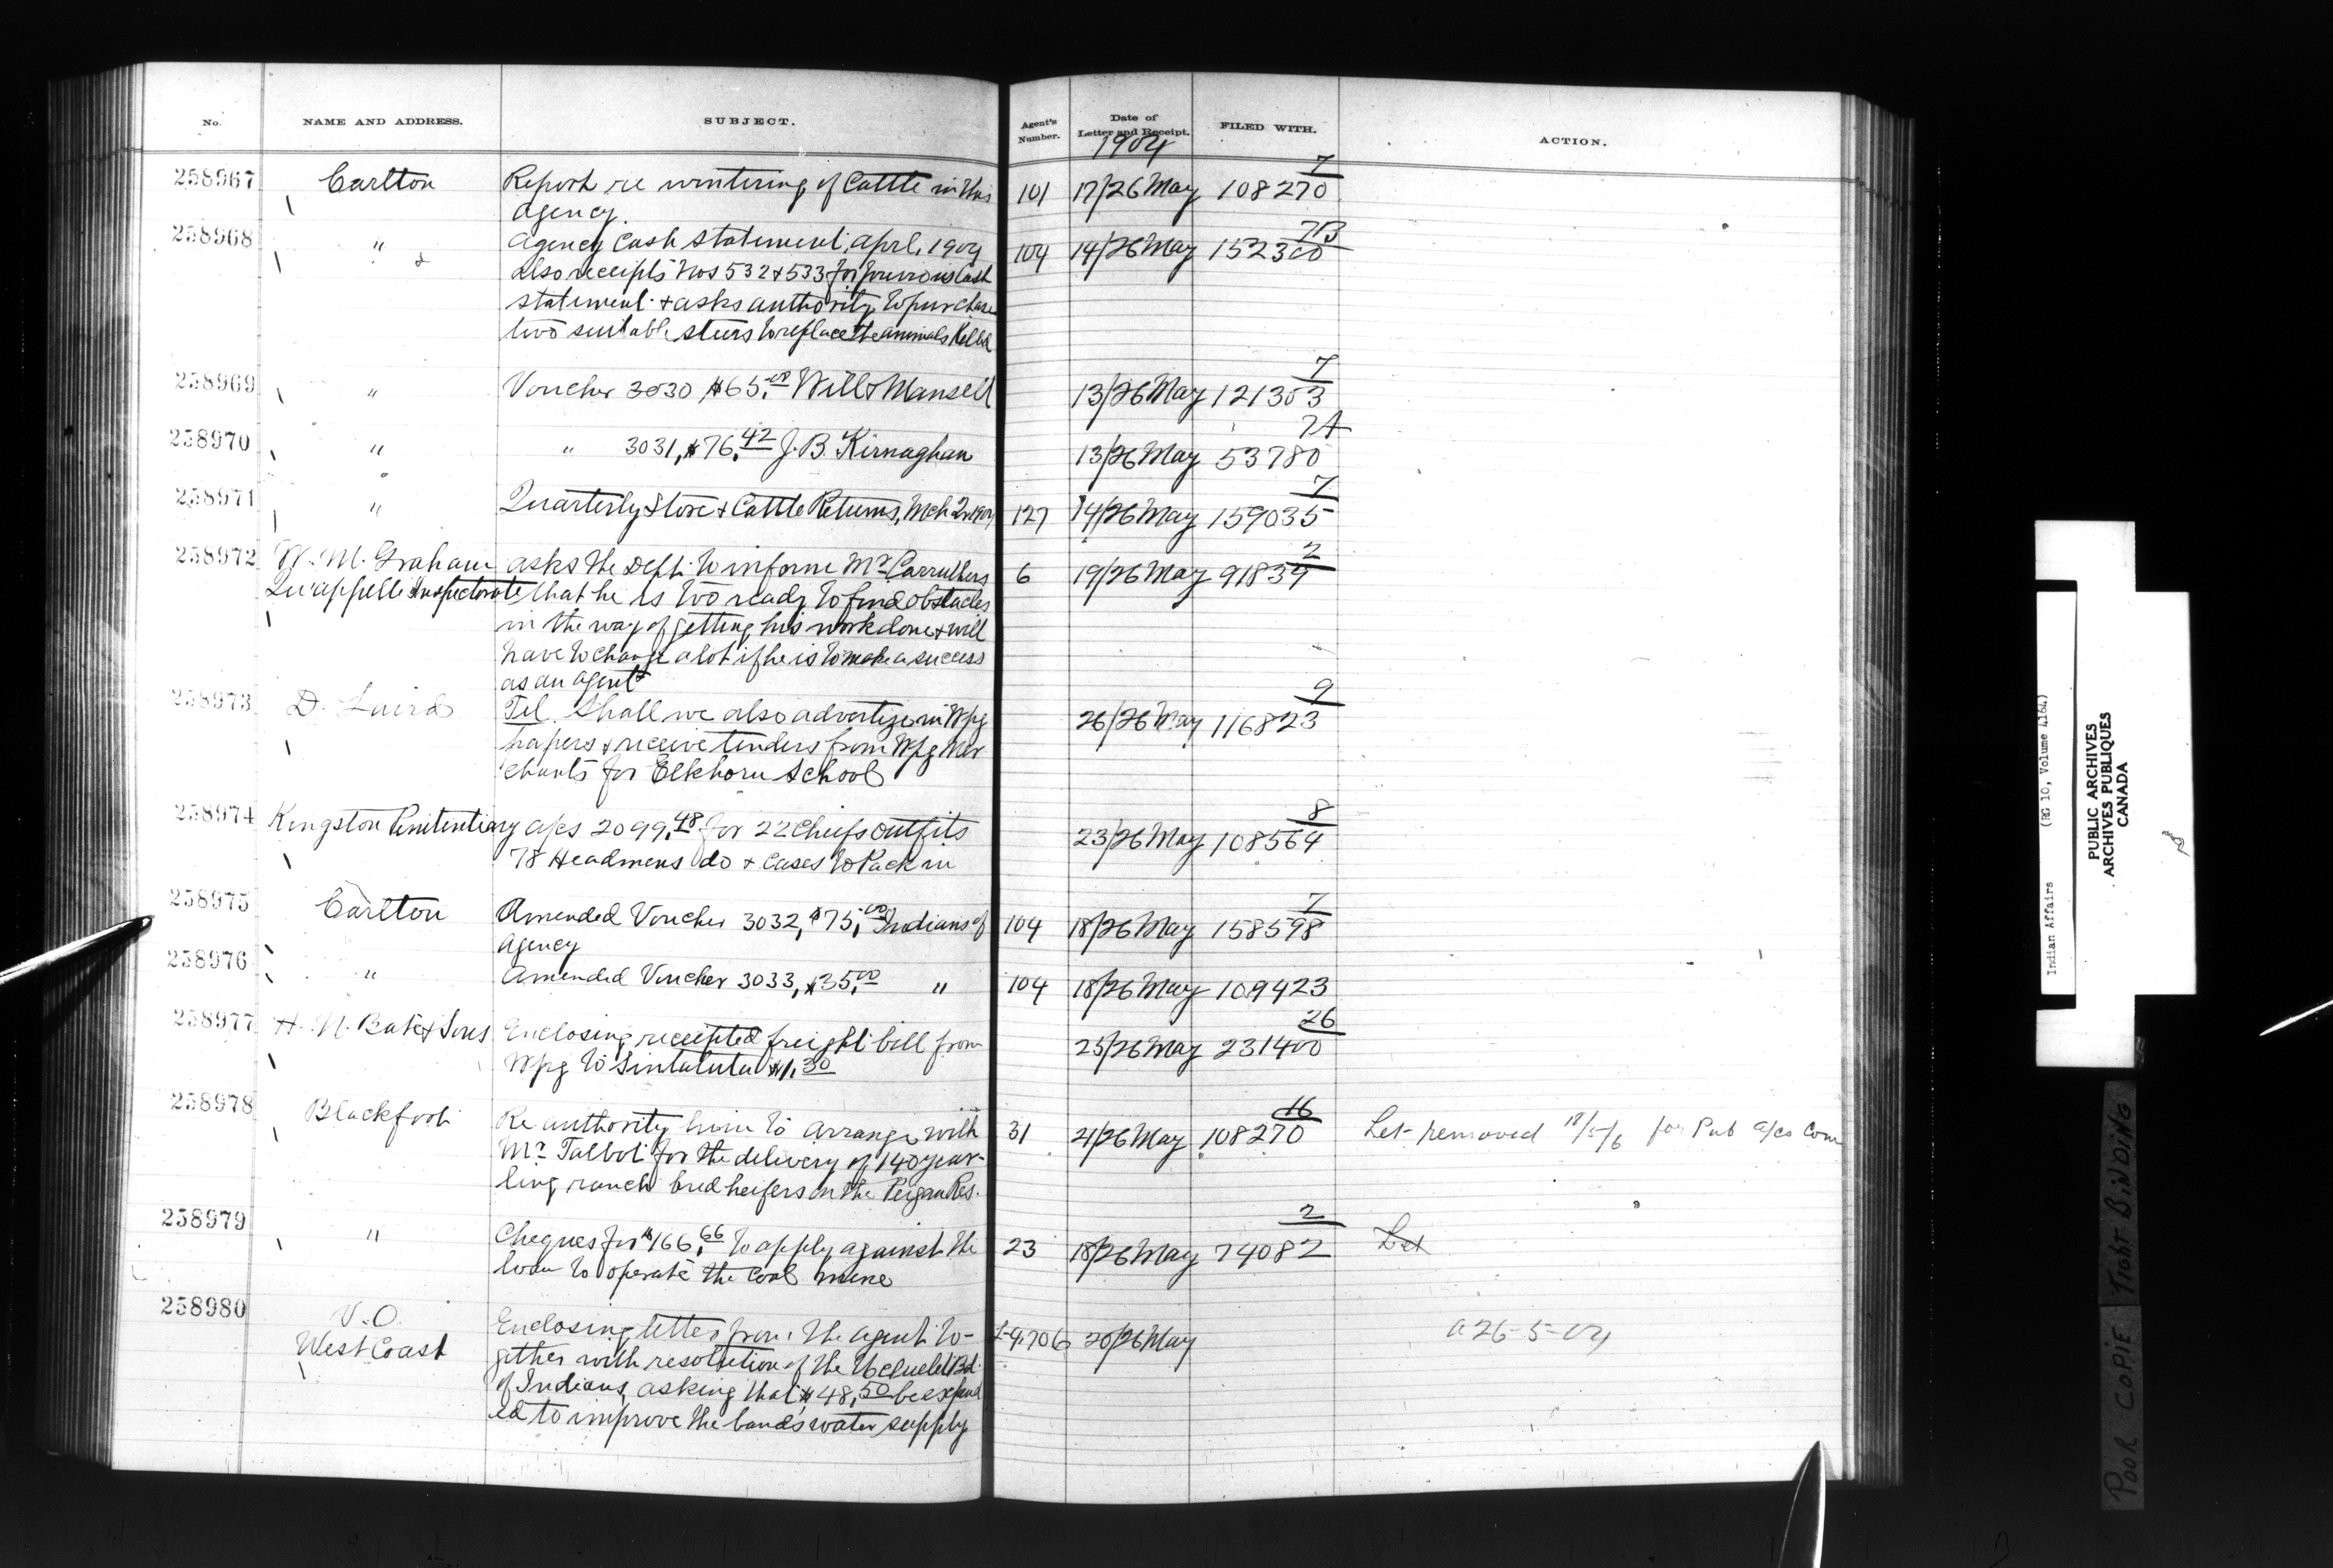 No. NAME AND ADDRESS. SUBJECT. Agent's Number. Date of Letter and Receipt. FILED WITH. ACTION.
1904
258967 Carlton Report re wintering of Cattle in this 101 17/26 May 108270 7
agency.
258968 " Agency Cash Statement, April, 1904 104 14/26 May 152300 7B
also receipts Nos 532 & 533 for previous Cash
statement & asks authority to purchase
two suitable steers to replace the animals killed
258969 " Voucher 3030 $65.00 Will & Mansell 13/26 May 121303 7
258970 " " 3031, $76.42 J. B. Kirnaghan 13/26 May 53780 7A
258971 " Quarterly Store & Cattle Returns, Mch Qr 1904 127 14/26 May 159035 7
258972 W. M. Graham asks the Dept. to inform Mr. Carruthers 6 19/26 May 91839 2
Qu'appelle Inspectorate that he is too ready to find obstacles
in the way of getting his work done & will
have to change a lot if he is to make a success
as an agent
258973 D. Laird Tel. Shall we also advertize in Wpg 26/26 May 116823 9
papers & receive tenders from Wpg Mer
chants for Elkhorn School
258974 Kingston Penitentiary a/cs 2099.48 for 22 Chiefs outfits 23/26 May 108564 8
78 Headmens do & Cases to Pack in
258975 Carlton Amended Voucher 3032, $75.00 Indians of 104 18/26 May 158598 7
agency
258976 " Amended Voucher 3033, $35.00 " 104 18/26 May 109423
258977 H. N. Bate & Sons Enclosing receipted freight bill from 25/26 May 231400 26
Wpg to Sintaluta $1.30
258978 Blackfoot Re authority him to arrange with 31 21/26 May 108270 16 Let removed 18/5/6 for Pub a/cs Com
Mr. Talbot for the delivery of 140 year-
ling ranch bred heifers on the Peigan Res.
258979 " Cheques for $166.66 to apply against the 23 18/26 May 74082 2 Let
loan to operate the coal mine
258980 V.O. Enclosing letter from the agent to- 20/26 May a 26-5-04
West Coast gether with resolution of the Ucluelet Bd.
of Indians, asking that $48.50 be expend
ed to improve the bands water supply
Indian Affairs (RG 10, Volume 4164)
PUBLIC ARCHIVES
ARCHIVES PUBLIQUES
CANADA
POOR COPIE TIGHT BINDING